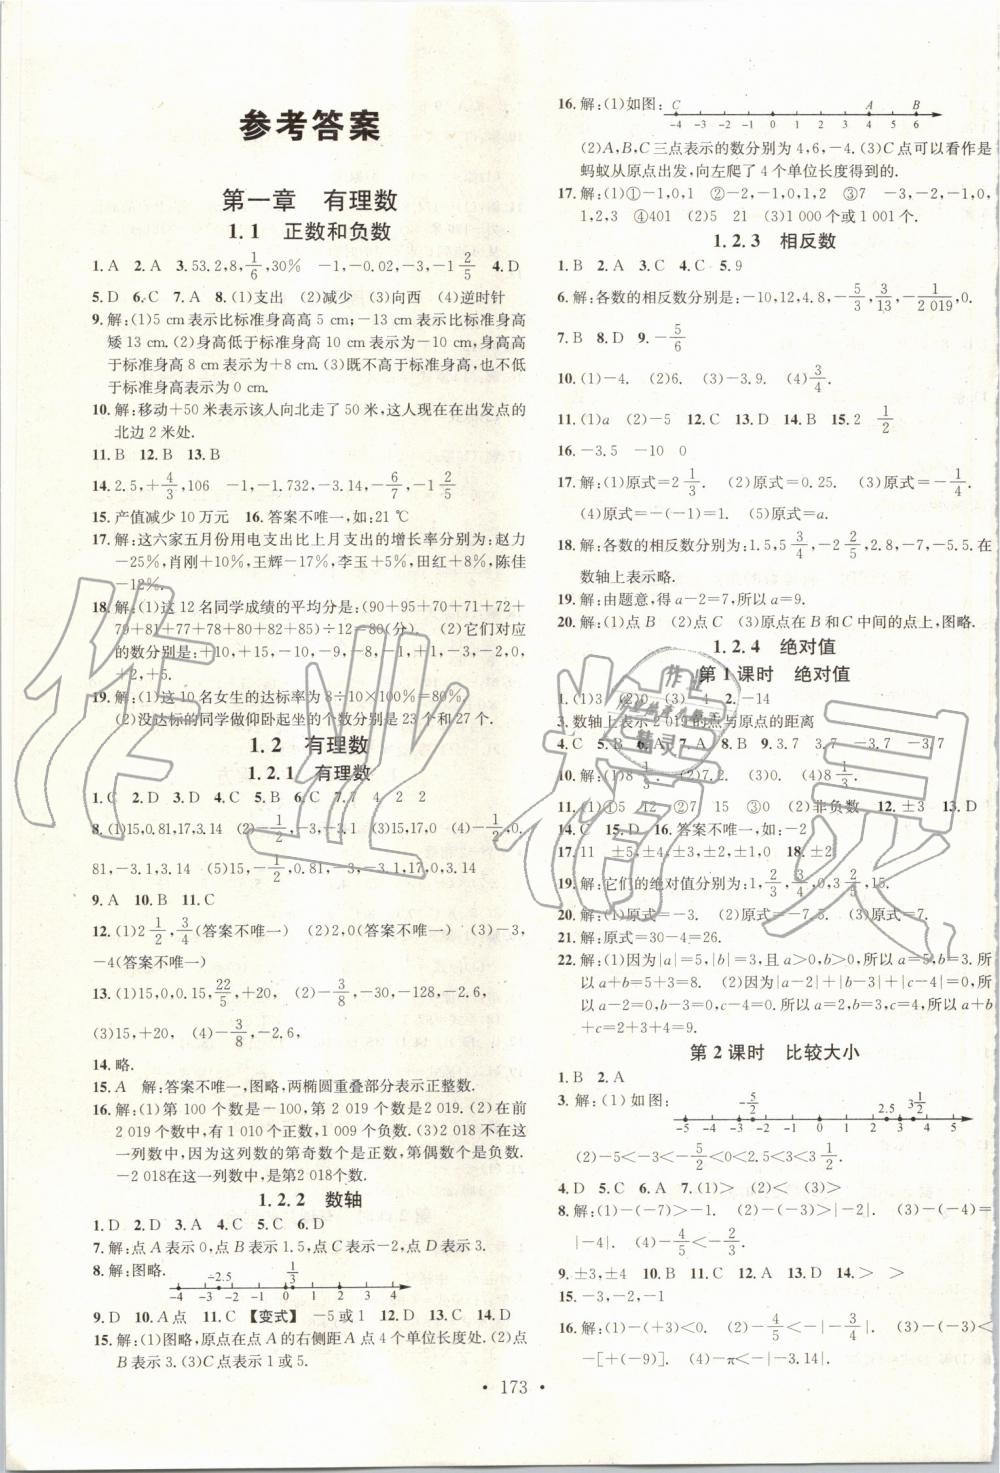 参考答案
第一章 有理数
1.1 正数和负数
1. A 2. A 3. 53.2,8,1/6,30% -1,-0.02,-3,-1 2/5 4. D
5. D 6. C 7. A 8. (1)支出 (2)减少 (3)向西 (4)逆时针
9. 解:(1)5 cm表示比标准身高高5 cm;-13 cm表示比标准身高
矮13 cm. (2)身高低于标准身高10 cm表示为-10 cm,身高高
于标准身高8 cm表示为+8 cm. (3)既不高于标准身高,也不低
于标准身高表示为0 cm.
10. 解:移动+50米表示该人向北走了50米,这人现在在出发点的
北边2米处.
11. B 12. B 13. B
14. 2.5,+4/3,106 -1,-1.732,-3.14,-6/7,-1 2/5
15. 产值减少10万元 16. 答案不唯一,如:21 ℃
17. 解:这六家五月份用电支出比上月支出的增长率分别为:赵力
-25%,肖刚+10%,王辉-17%,李玉+5%,田红+8%,陈佳
-12%.
18. 解:(1)这12名同学成绩的平均分是:(90+95+70+71+72+
79+81+77+78+80+80+87)÷12=80(分). (2)它们对应
的数分别是:+10,+15,-10,-9,-8,-1,+1,-3,-2,0,
0,+7.
19. 解:(1)这10名女生的达标率为8÷10×100%=80%.
(2)没达标的同学做仰卧起坐的个数分别是23个和27个.
1.2 有理数
1.2.1 有理数
1. C 2. D 3. D 4. D 5. B 6. C 7. 7 4 2 2
8. (1)15,0.81,17,3.14 (2)-1/2,-3,-3.1 (3)15,17,0 (4)-1/2,0.
81,-3.1,3.14 (5)15,-1/2,0.81,-3,-3.1,17,0,3.14
9. A 10. B 11. C
12. (1)2 1/2,3/4(答案不唯一) (2)2,0(答案不唯一) (3)-3,
-4(答案不唯一)
13. (1)15,0,0.15,22/5,+20, (2)-3/8,-30,-128,-2.6,
(3)15,+20, (4)-3/8,-2.6,
14. 略.
15. A 解:答案不唯一,图略,两椭圆重叠部分表示正整数.
16. 解:(1)第100个数是-100,第2 019个数是2 019. (2)在前
2 019个数中,有1 010个正数,1 009个负数. (3)2 018不在这
一列数中,因为这列数的第奇数个是正数,第偶数个是负数.
-2 018在这一列数中,是第2 018个数.
1.2.2 数轴
1. D 2. D 3. A 4. C 5. C 6. D
7. 解:点A表示0,点B表示1.5,点C表示-2,点D表示3.
8. 解:图略. -2.5 1/3
-4 -3 -2 -1 0 1 2 3 4
9. D 10. A点 11. C 【变式】 -5或1 12. C 13. C 14. D
15. 解:(1)图略,原点在点A的右侧距A点4个单位长度处. (2)点
B表示3. (3)C点表示1或5.
16. 解:(1)如图: C A B
-4 -3 -2 -1 0 1 2 3 4 5 6
(2)A,B,C三点表示的数分别为4,6,-4. (3)C点可以看作是
蚂蚁从原点出发,向左爬了4个单位长度得到的.
17. 解:(1)①-1,0,1 ②-2,-1,0,1,2 ③7 -3,-2,-1,0,
1,2,3 ④401 (2)5 21 (3)1 000个或1 001个.
1.2.3 相反数
1. B 2. A 3. C 4. C 5. 9
6. 解:各数的相反数分别是:-10,12,4.8,-5/3,3/13,-1/2 019,0.
7. B 8. D 9. -5/6
10. (1)-4. (2)6. (3)-3.9. (4)3/4.
11. (1)a (2)-5 12. C 13. D 14. B 15. 2 1/2
16. -3.5 -10 0
17. 解:(1)原式=2 1/3. (2)原式=0.25. (3)原式=-1/4.
(4)原式=-(-1)=1. (5)原式=a.
18. 解:各数的相反数分别为:1.5,5 3/4,-2 2/5,2.8,-7,-5.5. 在
数轴上表示略.
19. 解:由题意,得a-2=7,所以a=9.
20. 解:(1)点B (2)点C (3)原点在B和C中间的点上,图略.
1.2.4 绝对值
第1课时 绝对值
1. (1)3 (2)0 (3)-4 2. -14
3. 数轴上表示2 019的点与原点的距离
4. C 5. B 6. A 7. A 8. B 9. 3.7 -3.7 -3.7
10. 解:(1)8 1/3. (2)7.2. (3)0. (4)8 1/3.
11. (1)①5 12 ②7 15 ③0 (2)非负数 12. ±3 13. D
14. C 15. D 16. 答案不唯一,如:-2
17. 11 ±5,±4,±3,±2 18. ±2
19. 解:它们的绝对值分别为:1,2/3,3/4,0,3 2/5,15.
20. 解:(1)原式=-3. (2)原式=-7.5. (3)原式=0.
21. 解:原式=30-4=26.
22. 解:(1)因为|a|=5,|b|=3,且a>0,b>0,所以a=5,b=3. 所
以a+b=5+3=8. (2)因为|a-2|+|b-3|+|c-4|=0,所
以a-2=0,b-3=0,c-4=0. 所以a=2,b=3,c=4,a+b+
+c=2+3+4=9.
第2课时 比较大小
1. B 2. A
3. 解:(1)如图: -5/2 2.5 3 1/2
-5 -4 -3 -2 -1 0 1 2 3 4 5
(2)-5<-3<-5/2<-2<2.5<3 1/2.
4. D 5. A 6. A 7. (1)> (2)< (3)>
8. 解:(1)-(-7)>-1. (2)-(-2.1)>|-2|. (3)-(-4)=
|-4|. (4)-4/5<-2/3.
9. ±3,±4 10. B 11. C 12. A 13. A 14. > >
15. -3,-2,-1
16. 解:(1)-(+3)<0. (2)-4/5<-|-3/4|. (3)-(-9)=
-[+(-9)]. (4)-π<-|-3.14|.
· 173 ·
作业精灵
作业
精灵